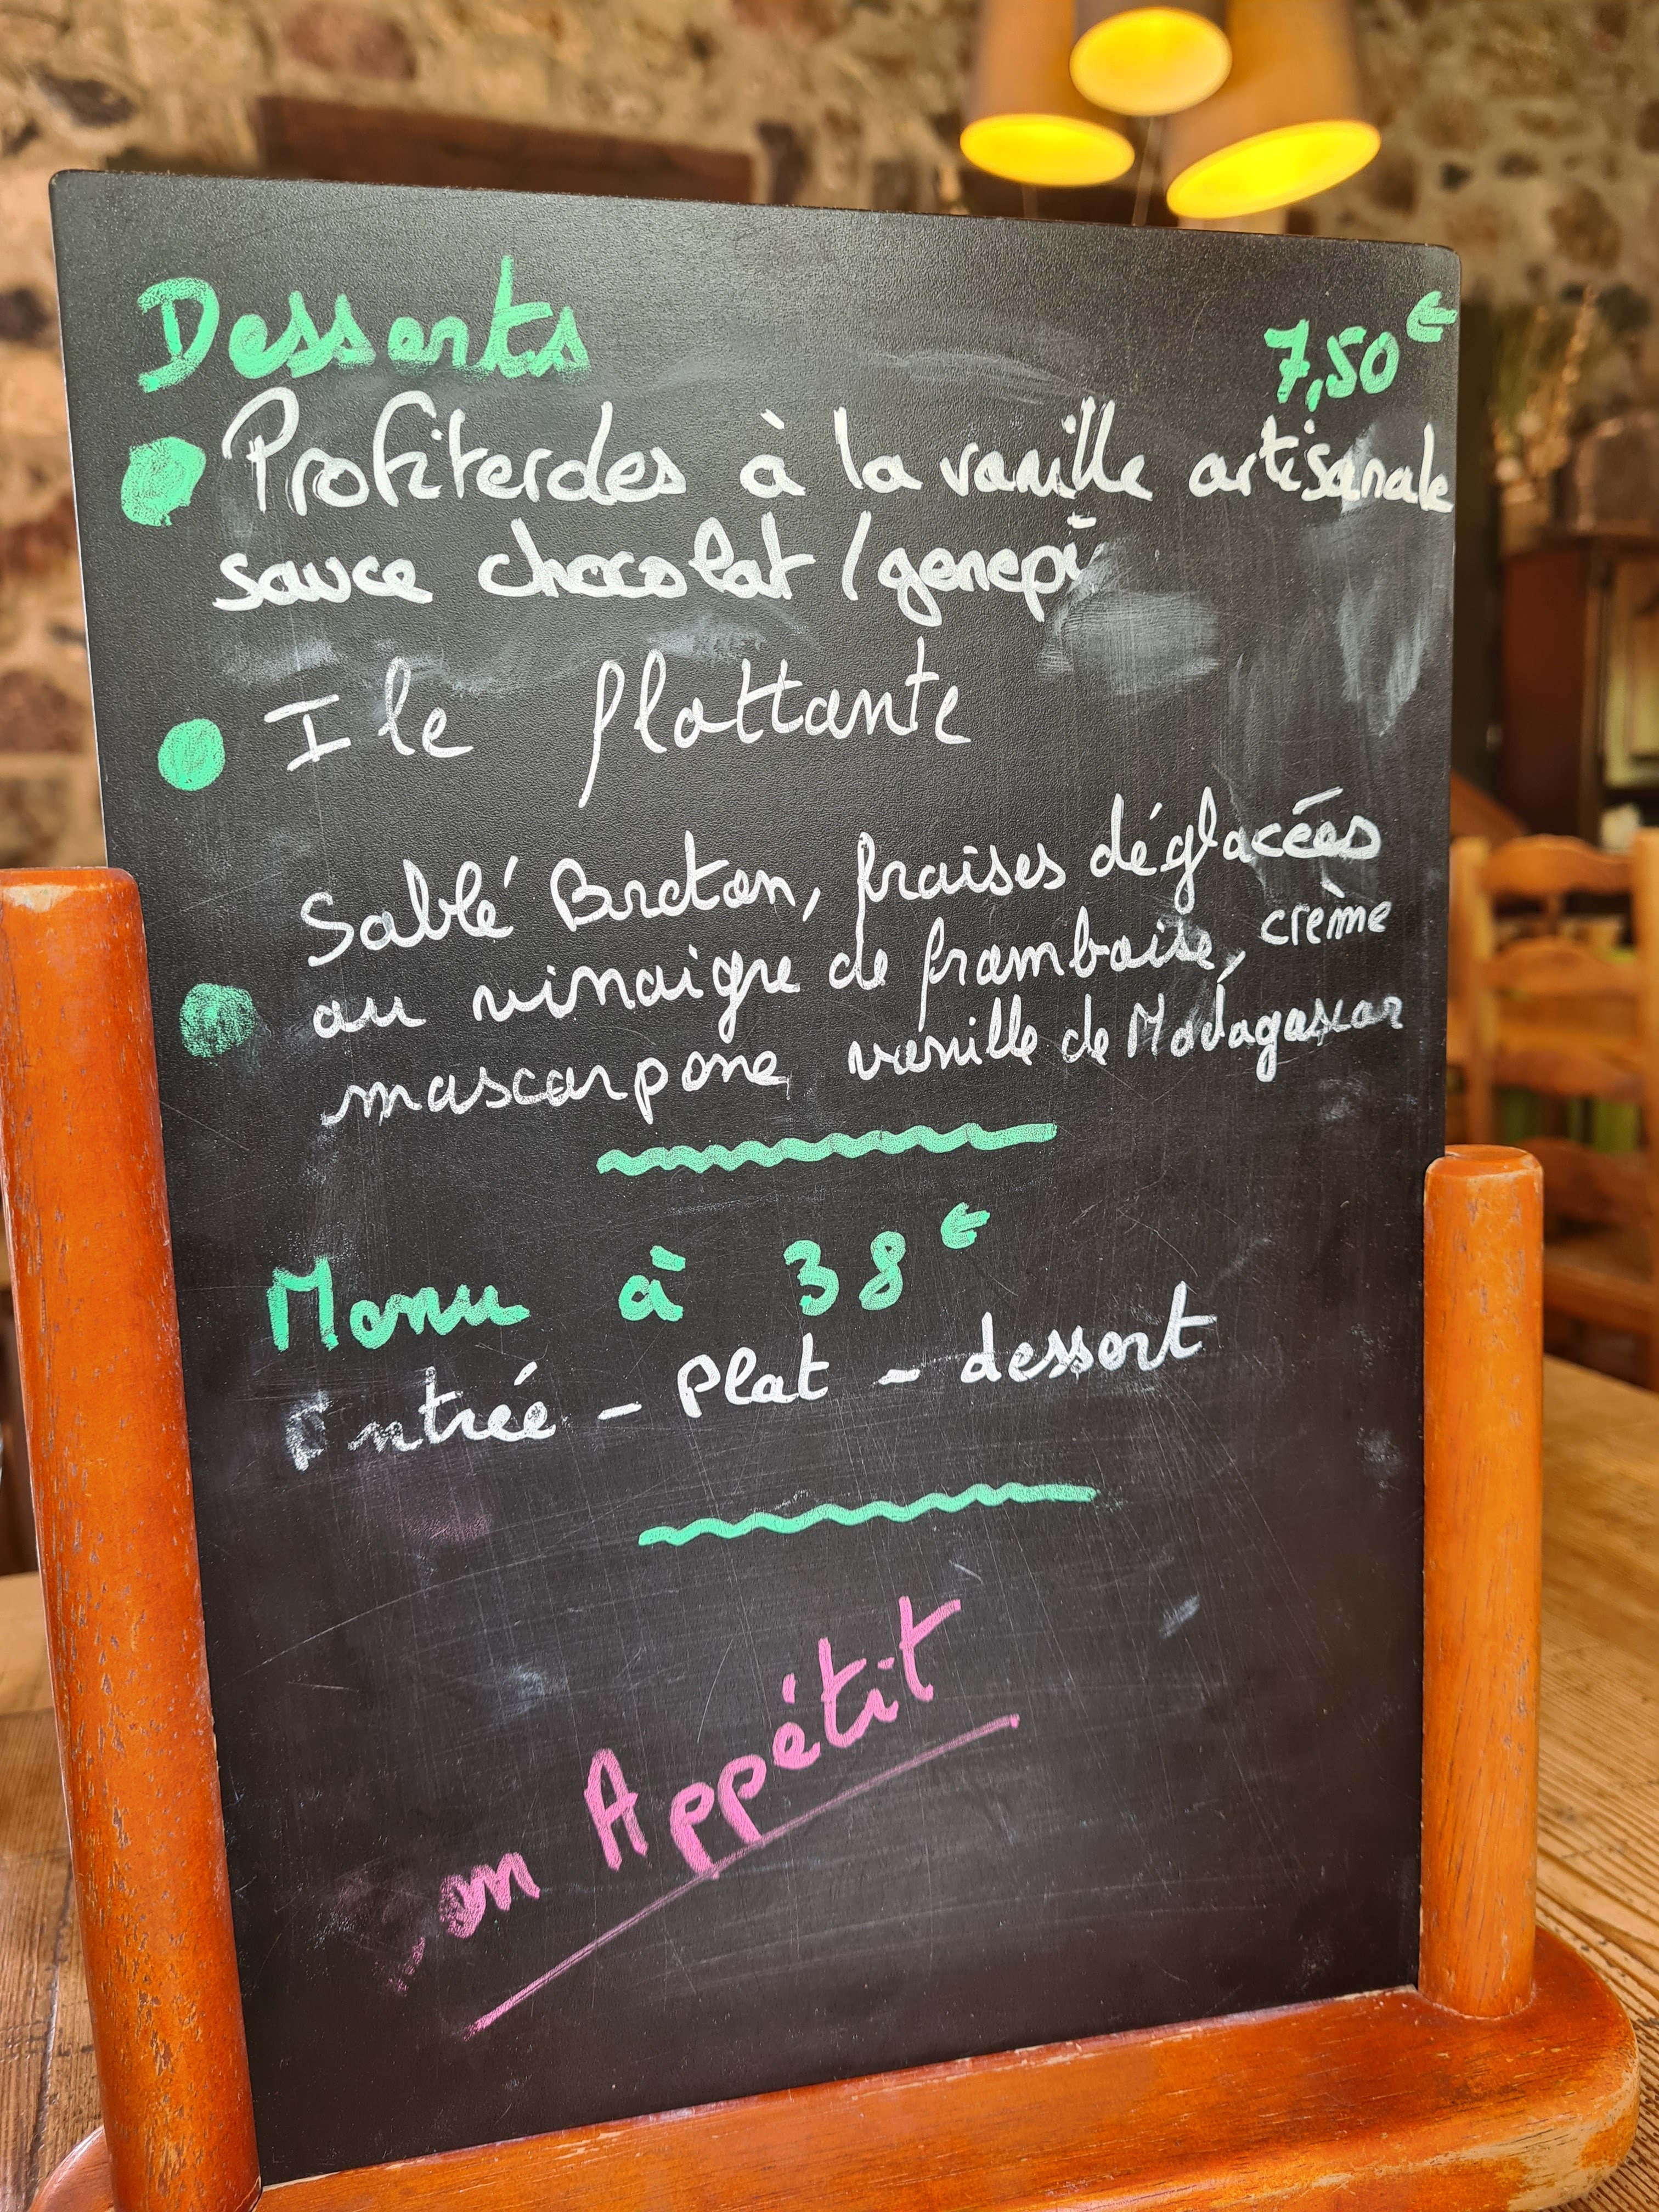 Desserts 7,50€
Profiteroles à la vanille artisanale
sauce chocolat / genepi
Ile flottante
Sablé Breton, fraises déglacées
au vinaigre de framboise, crème
mascarpone vanille de Madagascar
Menu à 38€
Entrée - Plat - dessert
on Appétit